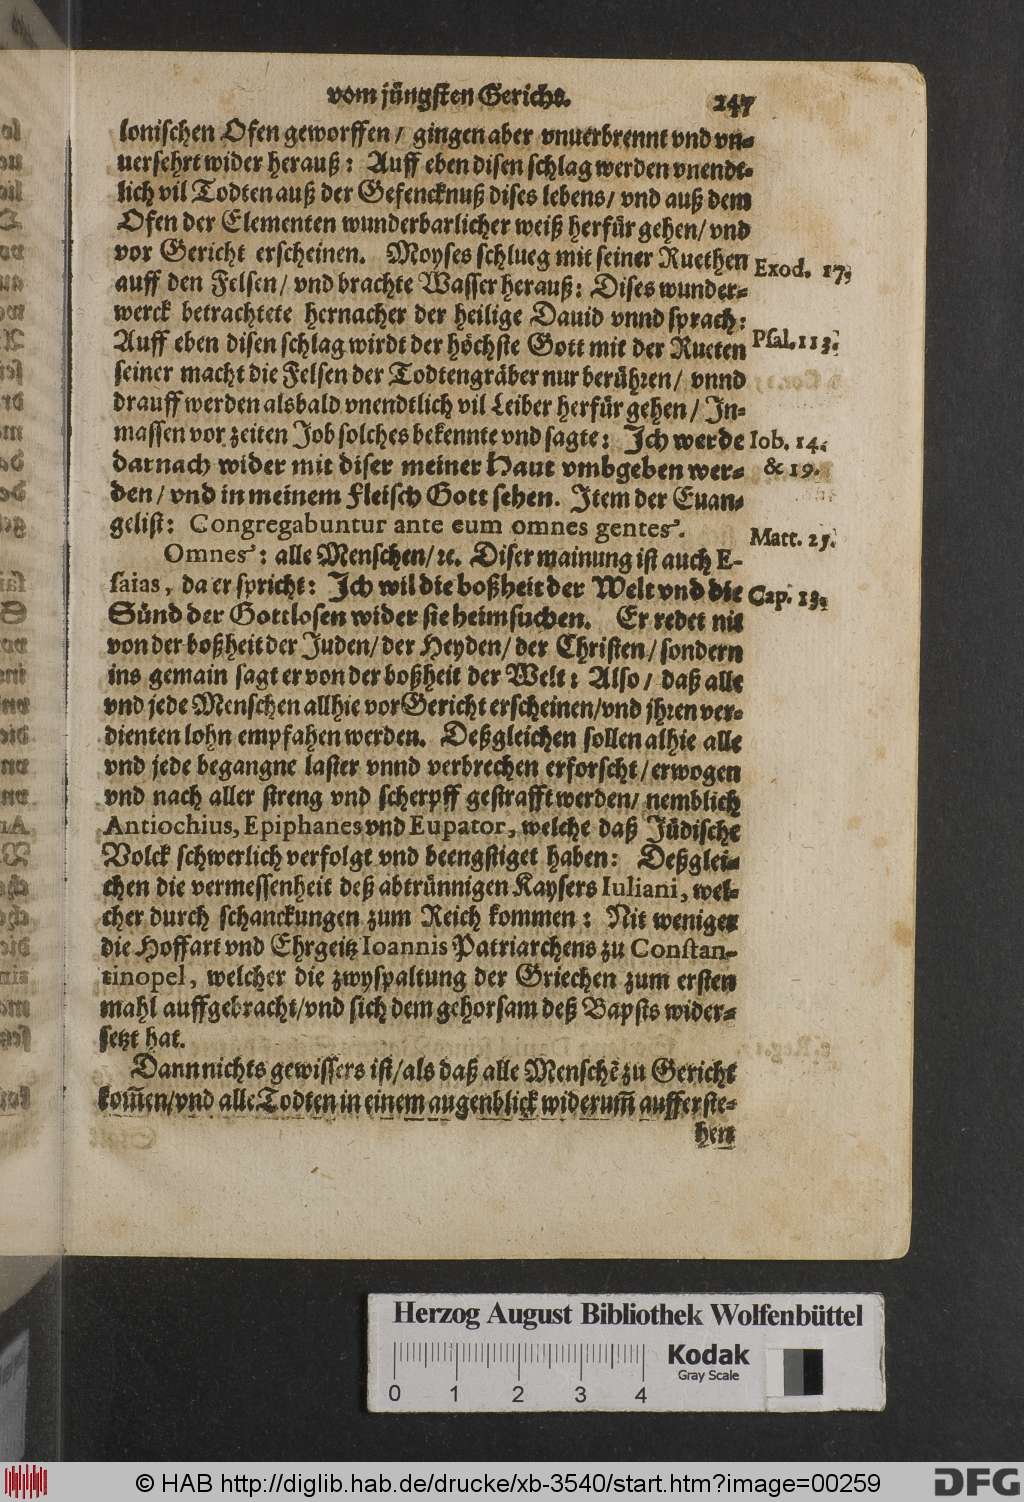 vom jüngsten Gericht. 247
lonischen Ofen geworffen / gingen aber vnuerbrennt vnd vn⸗
uersehrt wider herauß: Auff eben disen schlag werden vnendt⸗
lich vil Todten auß der Gefencknuß dises lebens / vnd auß dem
Ofen der Elementen wunderbarlicher weiß herfür gehen / vnd
vor Gericht erscheinen. Moyses schlueg mit seiner Ruethen
Exod. 17.
auff den Felsen / vnd brachte Wasser herauß: Dises wunder⸗
werck betrachtete hernacher der heilige Dauid vnnd sprach:
Auff eben disen schlag wirdt der höchste Gott mit der Rueten
Psal. 113.
seiner macht die Felsen der Todtengräber nur berühren / vnnd
drauff werden alsbald vnendtlich vil Leiber herfür gehen / In⸗
massen vor zeiten Job solches bekennte vnd sagte: Ich werde
Iob. 14.
darnach wider mit diser meiner Haut vmbgeben wer⸗
& 19.
den / vnd in meinem Fleisch Gott sehen. Item der Euan⸗
gelist: Congregabuntur ante eum omnes gentes.
Matt. 25.
Omnes: alle Menschen / ꝛc. Diser mainung ist auch E-
saias, da er spricht: Ich wil die boßheit der Welt vnd die
Cap. 13.
Sünd der Gottlosen wider sie heimsuchen. Er redet nit
von der boßheit der Juden / der Heyden / der Christen / sondern
ins gemain sagt er von der boßheit der Welt: Also / daß alle
vnd jede Menschen allhie vor Gericht erscheinen / vnd jhren ver⸗
dienten lohn empfahen werden. Deßgleichen sollen alhie alle
vnd jede begangne laster vnnd verbrechen erforscht / erwogen
vnd nach aller streng vnd scherpff gestrafft werden / nemblich
Antiochius, Epiphanes vnd Eupator, welche daß Jüdische
Volck schwerlich verfolgt vnd beengstiget haben: Deßglei⸗
chen die vermessenheit deß abtrünnigen Kaysers Iuliani, wel⸗
cher durch schanckungen zum Reich kommen: Nit weniger
die Hoffart vnd Ehrgeitz Ioannis Patriarchens zu Constan-
tinopel, welcher die zwyspaltung der Griechen zum ersten
mahl auffgebracht / vnd sich dem gehorsam deß Bapsts wider⸗
setzt hat.
Dann nichts gewissers ist / als daß alle Menschẽ zu Gericht
kom̃en / vnd alle Todten in einem augenblick widerum̃ aufferste⸗
hen
Herzog August Bibliothek Wolfenbüttel
Kodak
Gray Scale
0 1 2 3 4
© HAB http://diglib.hab.de/drucke/xb-3540/start.htm?image=00259
DFG